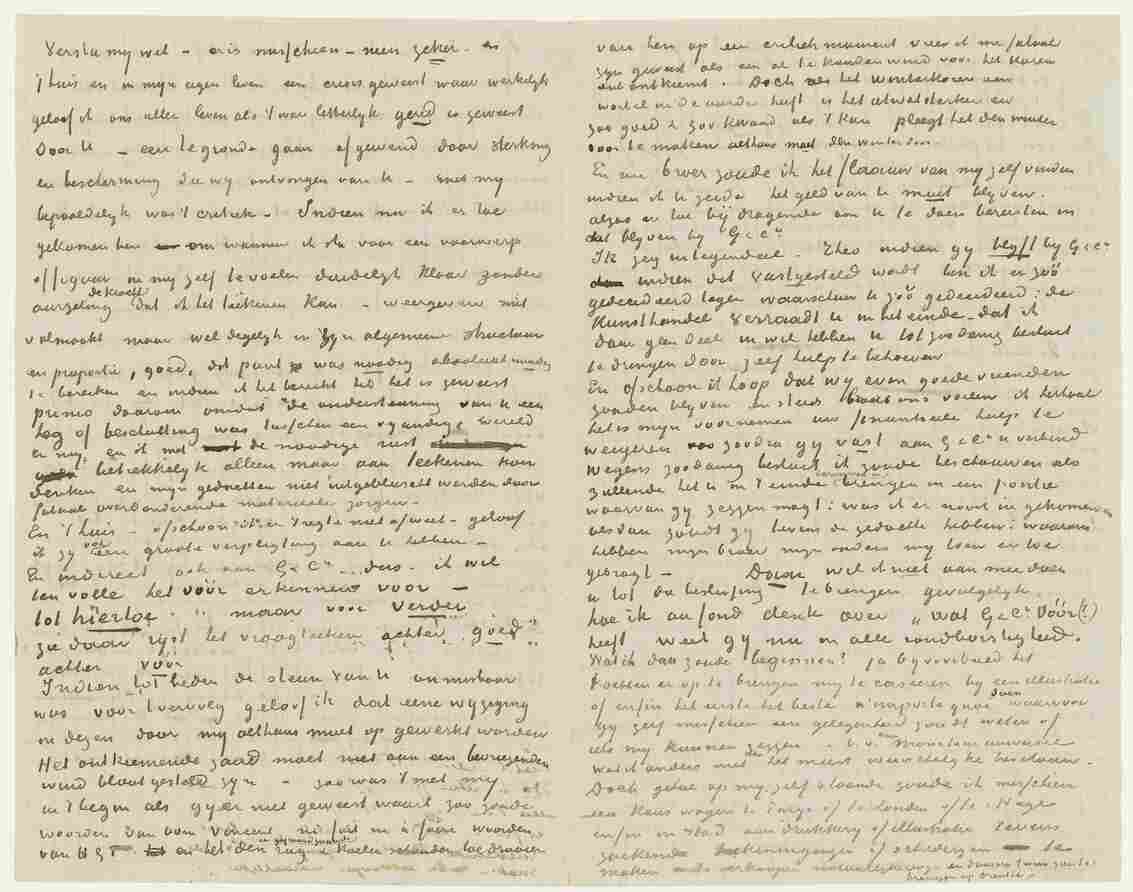 Versta my wel – er is misschien – neen zeker – en
't huis en in mijn eigen leven een crisis geweest waar werkelyk
geloof ik ons aller leven als 't ware letterlyk gered is geweest
door U – een te gronde gaan afgewend door sterking
en bescherming die wy ontvongen van U – met my
bepaaldelyk was 't critiek – Indien nu ik er toe
gekomen ben om wanneer ik sta voor een voorwerp
of figuur in my zelf te voelen duidelyk klaar zonder
aarzeling de kracht dat ik het teekenen kan – weergeven niet
volmaakt maar wel degelyk in zyn algemeene structuur
en proportie, goed, dit punt was noodig absoluut noodig
te bereiken en indien ik het bereikt heb het is geweest
primo daarom omdat de ondersteuning van U een
heg of beschutting was tusschen een vyandige wereld
en my, en ik met de noodige rust
betrekkelyk alleen maar aan teekenen kon
denken en mijn gedachten niet uitgebluscht werden door
fataal overdonderende materieele zorgen –
En 't huis – ofschoon ik er 't regte niet af weet – geloof
ik zy ook een groote verpligting aan U hebben –
En indirect ook aan G&Cie – dus – ik wil
ten volle het vóór erkennen voor –
tot hiertoe – maar voor verder
zie daar rijst het vraagteeken achter „goed"
achter vóór
Indien tot heden de steun van U onmisbaar
was voor 't vervolg geloof ik dat eene wyziging
in dezen door my althans moet op gewerkt worden
Het ontkiemende zaad moet niet aan een bevriezenden
wind blootgesteld zyn – zoo was 't met my
in 't begin als gy er niet geweest waart zoo zouden
woorden van oom Vincent
van HGT – en het den rug en koele schouders toe draaien
van hen op een critiek moment voor ik me fataal
zyn geweest als een al te kouden wind voor het koren
dat ontkiemt. Doch als het winterkoren een
wortel in de aarde heeft is het al wat sterker en
zoo goed & zoo kwaad als 't kan plaagt het den winter
door te maken althans moet den winter door.
En nu broer zoude ik het van my zelf vinden
indien ik U zeide het geld van U moet blyven.
alzoo er toe bij dragende om U te doen berusten in
dat blyven by G&Cie
Ik zeg integendeel – Theo indien gy blyft by G&Cie
indien dat vastgesteld wordt ben ik er zóó
gedecideerd tegen waarschuw U zóó gedecideerd: de
Kunsthandel verraadt U in het einde – dat ik
daar geen deel in wil hebben U tot zoodanig besluit
te dringen door zelf hulp te behoeven
En ofschoon ik hoop dat wy even goede vrienden
zouden blyven en steeds ons voelen ik herhaal
het is mijn voornemen uw financieele hulp te
weigeren zoodra gy vast aan G&Cie U verbind
wegens zoodanig besluit ik zoude beschouwen als
zullende het U in 't einde brengen in een positie
waarvan gy zeggen mogt: was ik er nooit in gekomen en
alsdan zoudt gy tevens de gedachte hebben: waarom
hebben mijn broer mijn ouders my toen er toe
gebragt – Daar wil ik niet aan mee doen
U tot die beslissing te brengen gevolgelyk.
hoe ik au fond denk over „wat G&Cie vóór (!)
heeft weet gy nu in alle rondborstigheid.
Wat ik dan zoude beginnen? ja byvoorbeeld het
trachten er op te brengen my te caseeren by een illustratie
of enfin het eerste het beste n'importe quoi doen waarvoor
gy zelf misschien een gelegenheid zoudt weten of
iets my kunnen zeggen –
wat ik anders niet het meest wenschelyke beschouw –
Doch geheel op my zelf staande zoude ik misschien
een kans wagen te Parys of te Londen of te s'Hage
enfin in stad aan drukkery of illustratie tevens
zoekende teekeningen of schilderyen te
maken
brengen op Drenthe –